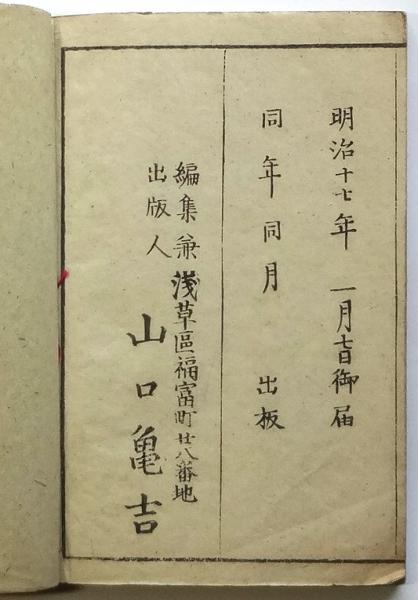 明治十七年 一月七日御届
同年同月 出板
編集兼
出版人
浅草區福富町廿八番地
山口亀吉